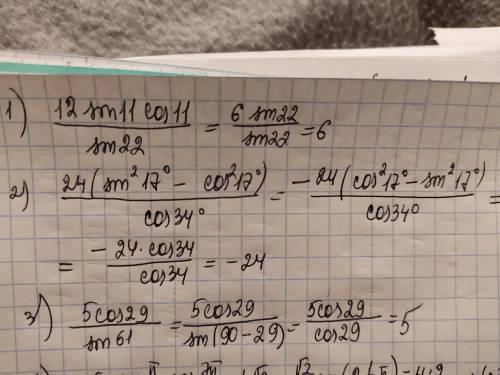 1) 12 sin11 cos11 / sin22 = 6 sin22 / sin22 = 6
2) 24(sin²17° - cos²17°) / cos34° = -24(cos²17° - sin²17°) / cos34° =
= -24·cos34 / cos34 = -24
3) 5cos29 / sin61 = 5cos29 / sin(90-29) = 5cos29 / cos29 = 5